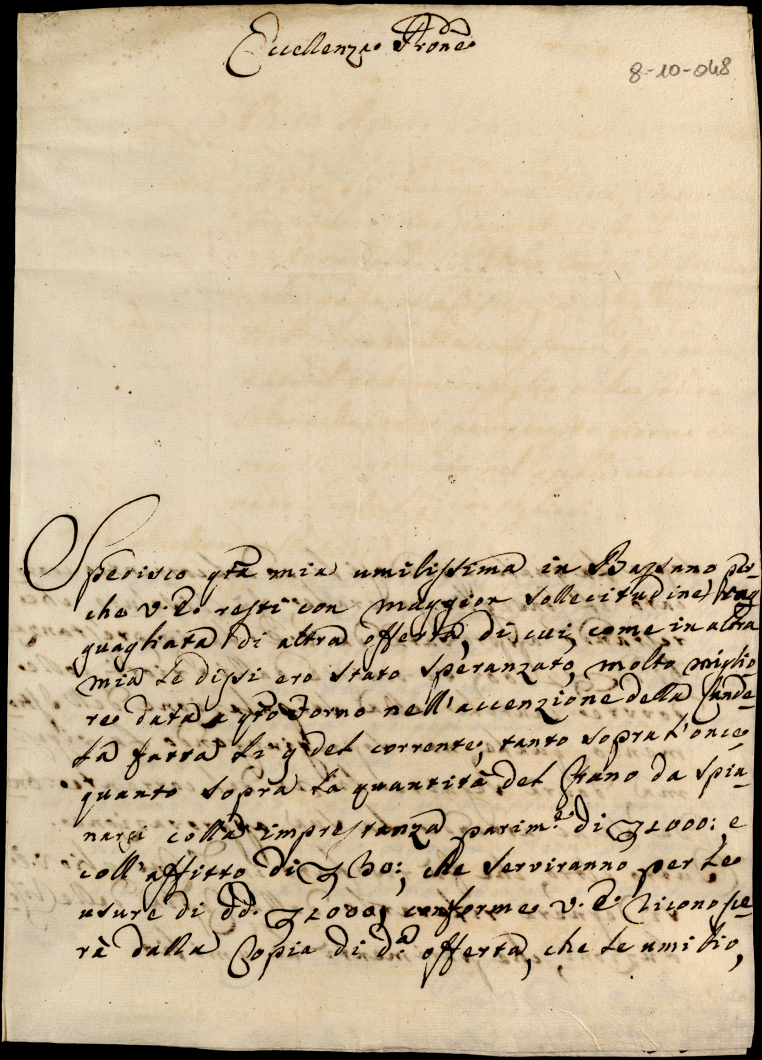 Eccellenza Prone
8-10-048
Sperisco qta mia umilissima in Bassano per-
che V. E. resti con maggior sollecitudine rag
guagliata di altra offerta, di cui, come in altra
mia le dissi ero stato speranzato, molto miglio
re data a qto Forno nell'accenzione della Cande-
la fatta li 9 del corrente, tanto sopra l'once
quanto sopra la quantità del Grano da spia-
narsi colla imprestanza parim.e di 1000: e
coll'affitto di 30:, che serviranno per le
usure di dd. 1000, conforme V. E. riconosce
rà dalla Copia di d.a offerta, che le umilio,